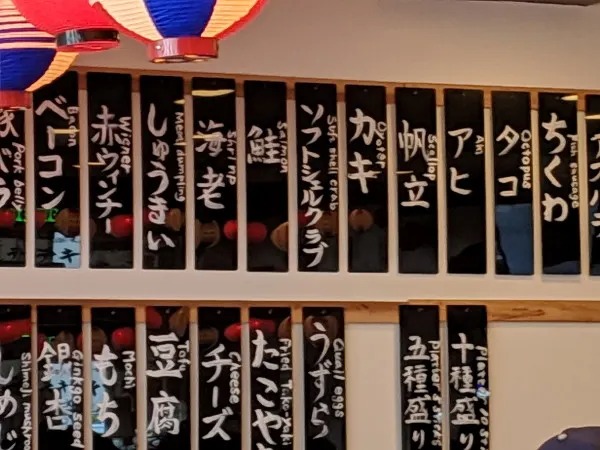 豚バラ
Pork belly
ベーコン
Bacon
赤ウィンナー
Wigner
しゅうまい
Meat dumpling
海老
Shrinp
鮭
Salmon
ソフトシェルクラブ
Soft shell crab
カキ
Oyster
帆立
Scallop
アヒ
Ahi
タコ
Octopus
ちくわ
Fish sausage
しめじ
Shimeji mushroom
銀杏
Ginkgo seed
もち
Mochi
豆腐
Tofu
チーズ
Cheese
たこやき
Fried Takoyaki
うずら
Quail eggs
五種盛り
十種盛り